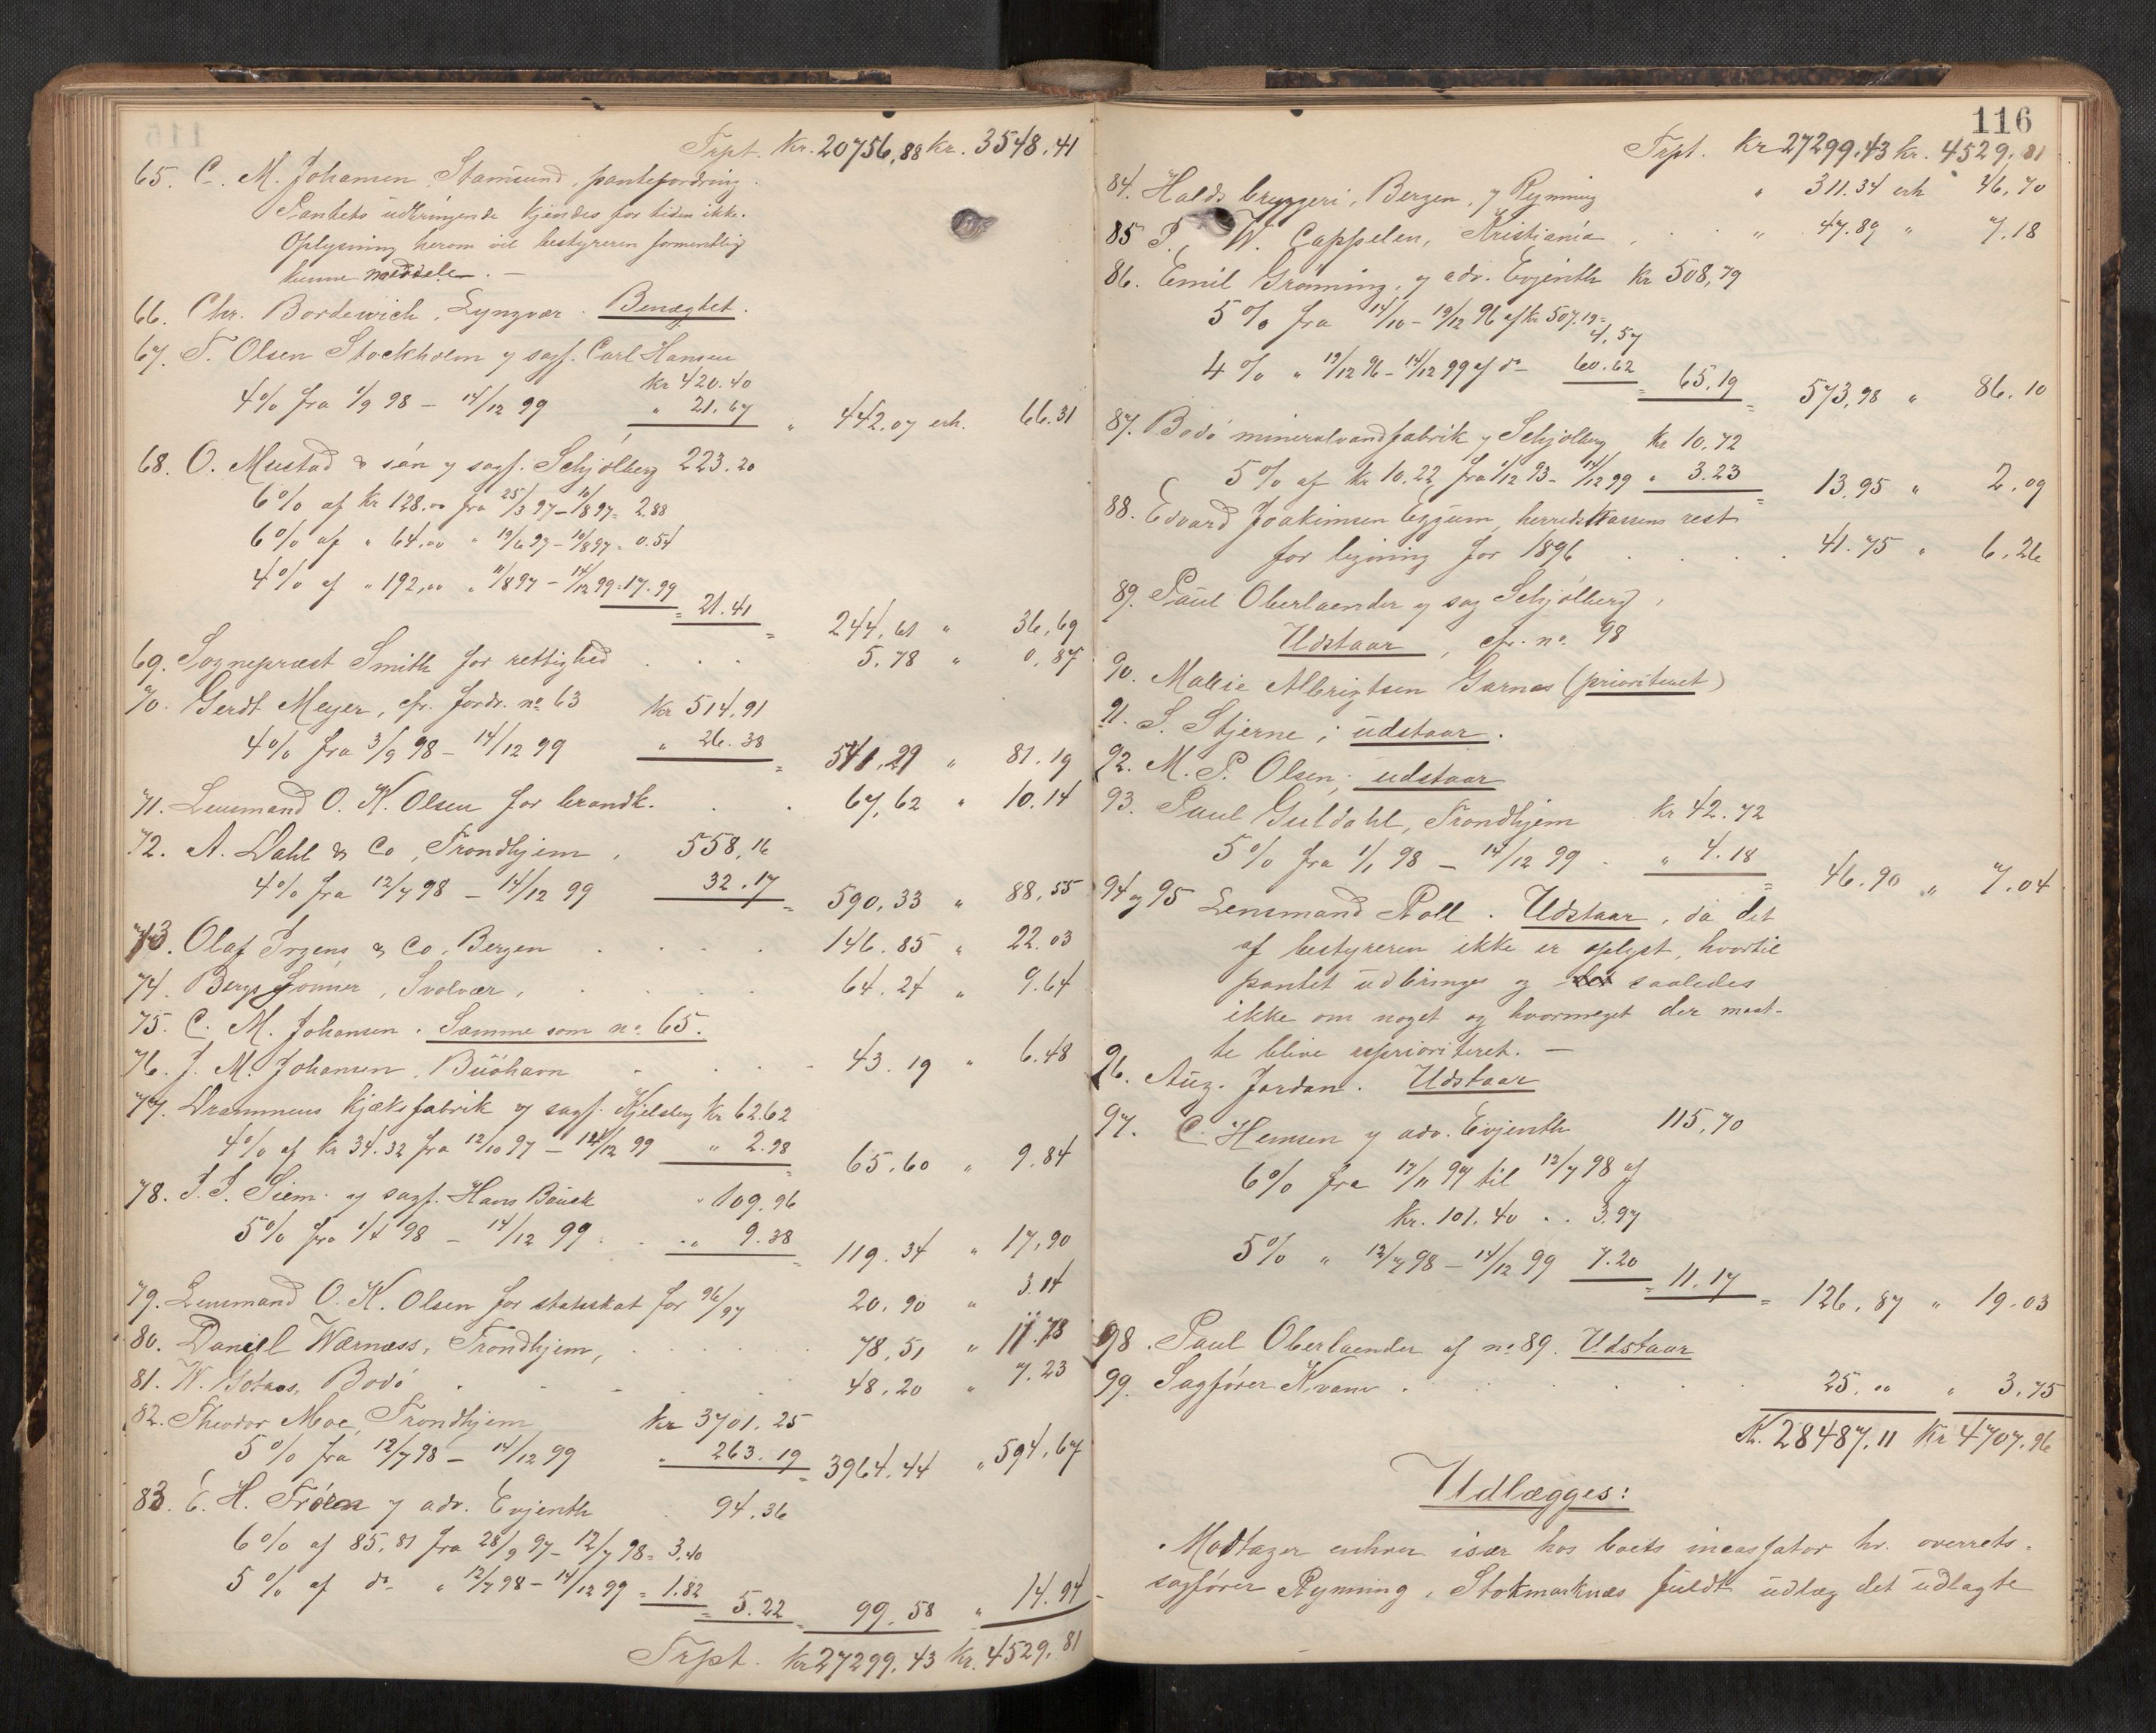 Trpt. Kr. 20756,88 Kr. 3548.41
65. C. M. Johansen, Stamsund, pantefordring.
Pantets udbringende kjendes for tiden ikke.
Oplysning herom vil bestyreren formentlig
kunne meddele. —
66. Chr. Bordewich, Lyngvær. Benægtet.
67. T. Olsen Stockholm v sagf. Carl Hansen
kr 420.40
4% fra 1/9 98 – 14/12 99 " 21.67 " 442.07 erh. 66.31
68. O. Mustad & søn v sagf. Schjølberg 223.20
6% af Kr 128.00 fra 25/3 97 – 10/8 97 = 2.88
6% af " 64,00 " 19/6 97 – 10/8 97 = 0.54
4% af " 192,00 " 11/8 97 – 14/12 99 = 17.99
= 21.41 = 244,61 " 36,69
69. Sognepræst Smith for rettighed . . . 5.78 " 0,87
70. Gerdt Meyer, cfr. fordr. no. 63 Kr 514,91
4% fra 3/9 98 – 14/12 99 " 26.38 = 541,29 " 81.19
71. Lensmand O. K. Olsen for brandk. . . 67,62 " 10.14
72. A. Dahl & Co, Trondhjem, 558,16
4% fra 12/7 98 – 14/12 99 32.17 = 590,33 " 88,55
73. Olaf Irgens & Co, Bergen . . . . 146.85 " 22.03
74. Bergs Sønner, Svolvær, . . . . 64.24 " 9.64
75. C. M. Johansen. Samme som no. 65.
76. J. M. Johansen, . . . . 43.19 " 6.48
77. Drammens kjæksfabrik v sagf. Kjelsberg Kr 62.62
4% af Kr 34.32 fra 12/10 97 – 14/12 99 " 2.98 = 65.60 " 9.84
78. J. J. Siem v sagf. Hans Bauck " 109.96
5% fra 1/4 98 – 14/12 99 . . " 9.38 = 119.34 " 17,90
79. Lensmand O. K. Olsen for statsskat for 96/97 20,90 " 3.14
80. Daniel Wærnæss, Trondhjem, . . . 78,51 " 11.78
81. W. Gotaas, Bodø . . . . 48,20 " 7.23
82. Theodor Moe, Trondhjem kr 3701.25
5% fra 12/7 98 – 14/12 99 " 263.19 = 3964.44 " 594,67
83. E. H. Frøen v adv. Evjenth . 94,36
6% af 85,81 fra 28/9 97 – 12/7 98 = 3,40
5% af do " 12/7 98 – 14/12 99 = 1.82 = 5.22 = 99.58 " 14.94
Trpt. Kr 27299.43 Kr. 4529,81
116
Trpt. Kr 27299.43 kr. 4529,81
84. Halds bryggeri, Bergen, v Rynning " 311.34 erh 46,70
85 P. W. Cappelen, Kristiania . . . " 47.89 " 7.18
86. Emil Grønning, v adv. Evjenth Kr 508,79
5% fra 14/10 – 19/12 96 af kr 507.19 = 4,57
4% " 19/12 96 – 14/12 99 af do 60.62 = 65.19 = 573,98 " 86.10
87. Bodø mineralvandfabrik v Schjølberg Kr 10,72
5% af Kr 10.22 fra 1/12 93 – 14/12 99 " 3.23 = 13.95 " 2,09
88. Edvard Joakimsen Eggum, herredskassens rest
for ligning for 1896 . . . . 41.75 " 6.26
89. Paul Oberlaender v sag Schjølberg,
Udstaar, cfr. no. 98
90. Malie Albrigtsen Garnes (prioriteret)
91. S. Stjerne; udstaar.
92. M. P. Olsen; udstaar
93. Paul Guldahl, Trondhjem Kr 42.72
5% fra 1/1 98 – 14/12 99 . " 4.18 = 46.90 " 7.04
94 og 95 Lensmand Roll. Udstaar, da det
af bestyreren ikke er oplyst, hvortil
pantet udbringes og saaledes
ikke om noget og hvormeget der maat-
te blive uprioriteret. —
96. Aug. Jordan. Udstaar
97. C. Hemsen v adv. Evjenth 115,70
6% fra 17/11 97 til 12/7 98 af
Kr. 101.40 . . 3.97
5% " 12/7 98 – 14/12 99 7.20 = 11.17 = 126,87 " 19.03
98. Paul Oberlaender af no 89. Udstaar
99. Sagfører Kvam . . . . 25,00 " 3,75
Kr. 28487.11 Kr 4707.96
Udlægges:
Modtager enhver især hos boets incassator hr. overrets-
sagfører Rynning, Stokmarknæs fuldt udlæg det udlagte